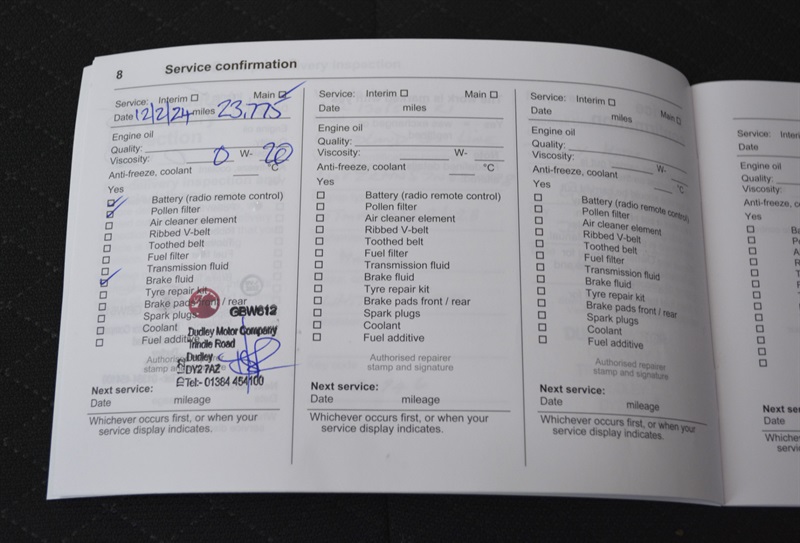 8 Service confirmation
Service: Interim Main
Date 12/2/24 miles 23,775
Engine oil
Quality:
Viscosity: 0 W- 20
Anti-freeze, coolant °C
Yes
Battery (radio remote control)
Pollen filter
Air cleaner element
Ribbed V-belt
Toothed belt
Fuel filter
Transmission fluid
Brake fluid
Tyre repair kit
Brake pads front / rear
Spark plugs
Coolant
Fuel additive
GBW612
Dudley Motor Company
Trindle Road
Dudley
DY2 7AZ
Tel:- 01384 454100
Authorised repairer
stamp and signature
Next service:
Date mileage
Whichever occurs first, or when your
service display indicates.
Service: Interim Main
Date miles
Engine oil
Quality:
Viscosity: W-
Anti-freeze, coolant °C
Yes
Battery (radio remote control)
Pollen filter
Air cleaner element
Ribbed V-belt
Toothed belt
Fuel filter
Transmission fluid
Brake fluid
Tyre repair kit
Brake pads front / rear
Spark plugs
Coolant
Fuel additive
Authorised repairer
stamp and signature
Next service:
Date mileage
Whichever occurs first, or when your
service display indicates.
Service: Interim Main
Date miles
Engine oil
Quality:
Viscosity: W-
Anti-freeze, coolant °C
Yes
Battery (radio remote control)
Pollen filter
Air cleaner element
Ribbed V-belt
Toothed belt
Fuel filter
Transmission fluid
Brake fluid
Tyre repair kit
Brake pads front / rear
Spark plugs
Coolant
Fuel additive
Authorised repairer
stamp and signature
Next service:
Date mileage
Whichever occurs first, or when your
service display indicates.
Service:
Date
Engine oil
Quality:
Viscosity:
Yes
Date